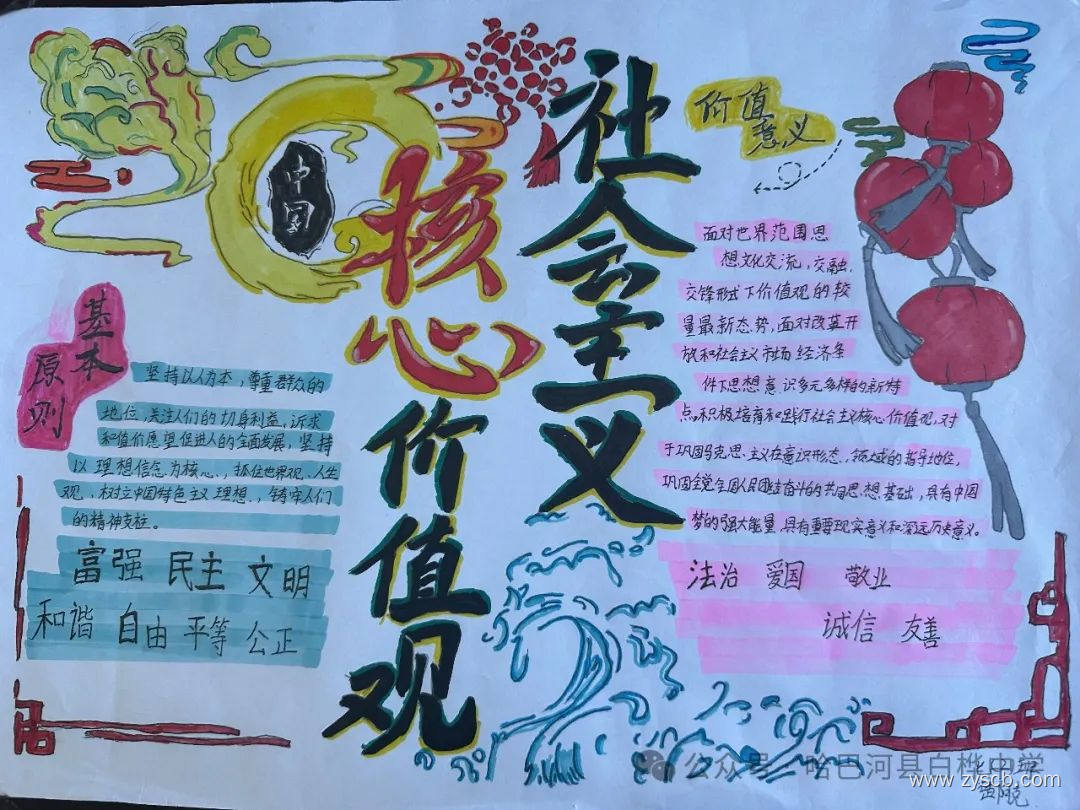 社会主义
核心价值观
中国
价值
意义
面对世界范围思
想文化交流，交融，
交锋形式下价值观的较
量最新态势，面对改革开
放和社会主义市场经济条
件下思想意识多元多样的新特
点，积极培育和践行社会主义核心价值观，对
于巩固马克思主义在意识形态、领域的指导地位，
巩固全党全国人民团结奋斗的共同思想基础，具有中国
梦的强大能量，具有重要现实意义和深远历史意义。
法治 爱国 敬业
诚信 友善
基本
原则
坚持以人为本，尊重群众的
地位，关注人们的切身利益，诉求
和值价愿望促进人的全面发展，坚持
以理想信念为核心，抓住世界观、人生
观、树立中国特色主义理想，铸牢人们
的精神支柱。
富强 民主 文明
和谐 自由 平等 公正
公众号 哈巴河县白桦中学
www.zyscb.com